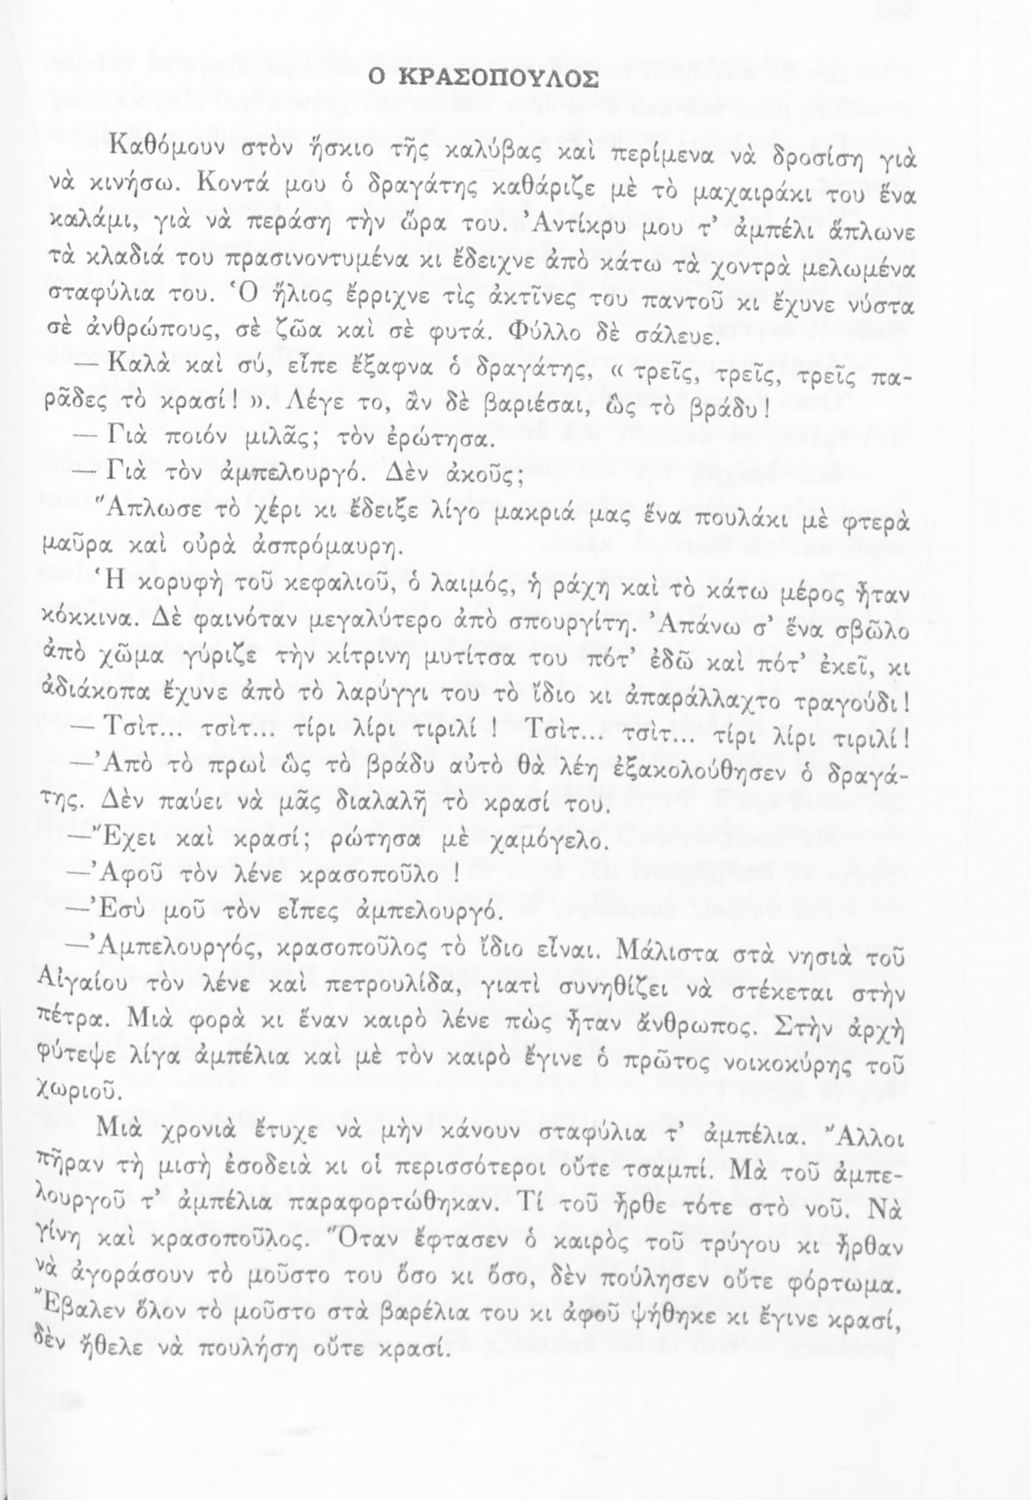 Ο ΚΡΑΣΟΠΟΥΛΟΣ
Καθόμουν στὸν ἥσκιο τῆς καλύβας καὶ περίμενα νὰ δροσίση γιὰ
νὰ κινήσω. Κοντά μου ὁ δραγάτης καθάριζε μὲ τὸ μαχαιράκι του ἕνα
καλάμι, γιὰ νὰ περάση τὴν ὥρα του. Ἀντίκρυ μου τ' ἀμπέλι ἅπλωνε
τὰ κλαδιά του πρασινοντυμένα κι ἔδειχνε ἀπὸ κάτω τὰ χοντρὰ μελωμένα
σταφύλια του. Ὁ ἥλιος ἔρριχνε τὶς ἀκτῖνες του παντοῦ κι ἔχυνε νύστα
σὲ ἀνθρώπους, σὲ ζῶα καὶ σὲ φυτά. Φύλλο δὲ σάλευε.
— Καλὰ καὶ σύ, εἶπε ἔξαφνα ὁ δραγάτης, « τρεῖς, τρεῖς, τρεῖς πα-
ρᾶδες τὸ κρασί! ». Λέγε το, ἂν δὲ βαριέσαι, ὣς τὸ βράδυ!
— Γιὰ ποιόν μιλᾶς; τὸν ἐρώτησα.
— Γιὰ τὸν ἀμπελουργό. Δὲν ἀκοῦς;
Ἅπλωσε τὸ χέρι κι ἔδειξε λίγο μακριά μας ἕνα πουλάκι μὲ φτερὰ
μαῦρα καὶ οὐρὰ ἀσπρόμαυρη.
Ἡ κορυφὴ τοῦ κεφαλιοῦ, ὁ λαιμός, ἡ ράχη καὶ τὸ κάτω μέρος ἦταν
κόκκινα. Δὲ φαινόταν μεγαλύτερο ἀπὸ σπουργίτη. Ἀπάνω σ' ἕνα σβῶλο
ἀπὸ χῶμα γύριζε τὴν κίτρινη μυτίτσα του πότ' ἐδῶ καὶ πότ' ἐκεῖ, κι
ἀδιάκοπα ἔχυνε ἀπὸ τὸ λαρύγγι του τὸ ἴδιο κι ἀπαράλλαχτο τραγούδι!
— Τσὶτ... τσὶτ... τίρι λίρι τιριλί ! Τσὶτ... τσὶτ... τίρι λίρι τιριλί!
—Ἀπὸ τὸ πρωὶ ὣς τὸ βράδυ αὐτὸ θὰ λέη ἐξακολούθησεν ὁ δραγά-
της. Δὲν παύει νὰ μᾶς διαλαλῆ τὸ κρασί του.
—Ἔχει καὶ κρασί; ρώτησα μὲ χαμόγελο.
—Ἀφοῦ τὸν λένε κρασοποῦλο !
—Ἐσὺ μοῦ τὸν εἶπες ἀμπελουργό.
—Ἀμπελουργός, κρασοποῦλος τὸ ἴδιο εἶναι. Μάλιστα στὰ νησιὰ τοῦ
Αἰγαίου τὸν λένε καὶ πετρουλίδα, γιατὶ συνηθίζει νὰ στέκεται στὴν
πέτρα. Μιὰ φορὰ κι ἕναν καιρὸ λένε πὼς ἦταν ἄνθρωπος. Στὴν ἀρχὴ
φύτεψε λίγα ἀμπέλια καὶ μὲ τὸν καιρὸ ἔγινε ὁ πρῶτος νοικοκύρης τοῦ
χωριοῦ.
Μιὰ χρονιὰ ἔτυχε νὰ μὴν κάνουν σταφύλια τ' ἀμπέλια. Ἄλλοι
πῆραν τὴ μισὴ ἐσοδειὰ κι οἱ περισσότεροι οὔτε τσαμπί. Μὰ τοῦ ἀμπε-
λουργοῦ τ' ἀμπέλια παραφορτώθηκαν. Τί τοῦ ἦρθε τότε στὸ νοῦ. Νὰ
γίνη καὶ κρασοποῦλος. Ὅταν ἔφτασεν ὁ καιρὸς τοῦ τρύγου κι ἦρθαν
νὰ ἀγοράσουν τὸ μοῦστο του ὅσο κι ὅσο, δὲν πούλησεν οὔτε φόρτωμα.
Ἔβαλεν ὅλον τὸ μοῦστο στὰ βαρέλια του κι ἀφοῦ ψήθηκε κι ἔγινε κρασί,
δὲν ἤθελε νὰ πουλήση οὔτε κρασί.